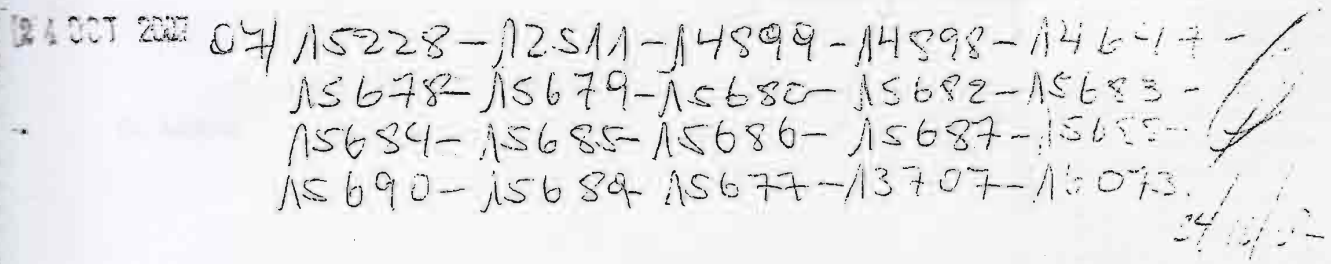 24 OCT 2007 07/ 15228-12511-14899-14898-14647-
15678-15679-15680-15682-15683-
15684-15685-15686-15687-15688-
15690-15689-15677-13707-16073.
24/10/07